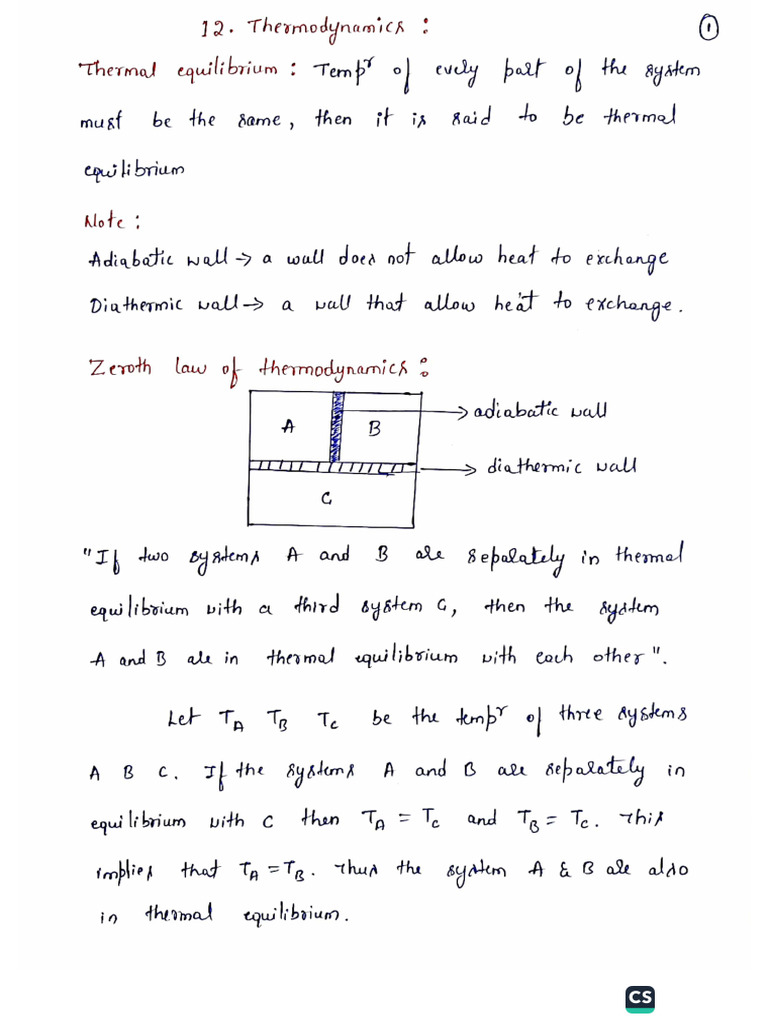 12. Thermodynamics :
1
Thermal equilibrium : Tempr of every part of the system
must be the same, then it is said to be thermal
equilibrium
Note :
Adiabatic wall → a wall does not allow heat to exchange
Diathermic wall → a wall that allow heat to exchange.
Zeroth law of thermodynamics :
A
B
→ adiabatic wall
→ diathermic wall
C
"If two systems A and B are separately in thermal
equilibrium with a third system C, then the system
A and B are in thermal equilibrium with each other".
Let TA TB TC be the tempr of three systems
A B C. If the systems A and B are separately in
equilibrium with C then TA = TC and TB = TC. This
implies that TA = TB. Thus the system A & B are also
in thermal equilibrium.
CS